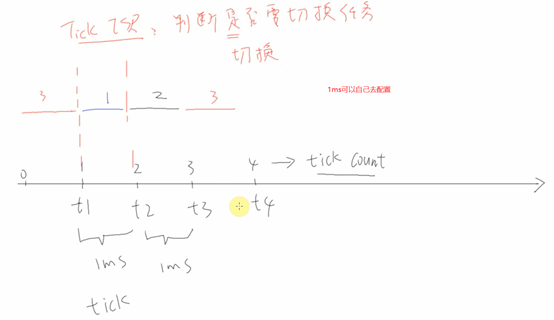 Tick ISR：判断是否要切换任务
切换
1ms可以自己去配置
3 1 2 3
0 1 2 3 4 → tick count
t1 t2 t3 t4
1ms 1ms
tick